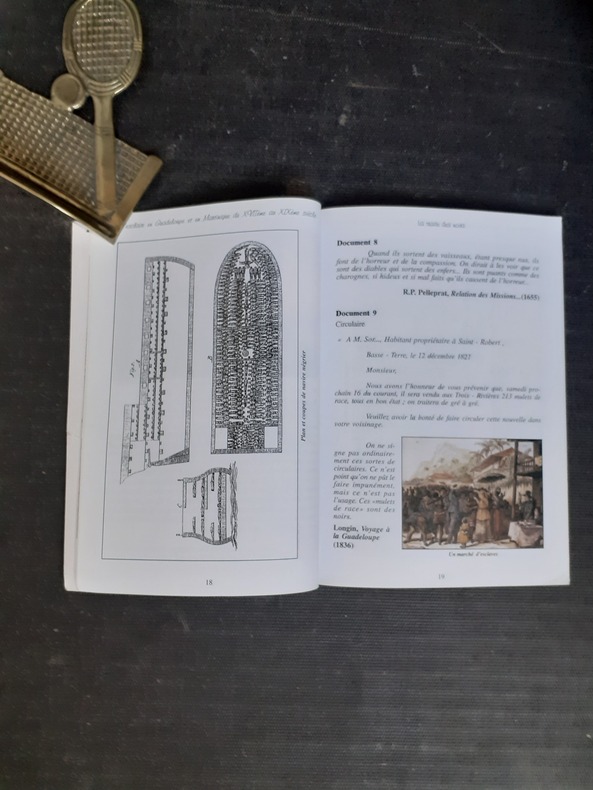 en Guadeloupe et en Martinique du XVIIème au XIXème siècle
Plan et coupes de navire négrier
18
Document 8
Quand ils sortent des vaisseaux, étant presque nus, ils
font de l'horreur et de la compassion. On dirait à les voir que ce
sont des diables qui sortent des enfers... Ils sont puants comme des
charognes, si hideux et si mal faits qu'ils causent de l'horreur.
R.P. Pelleprat, Relation des Missions...(1655)
Document 9
Circulaire
« A M. Son..., Habitant propriétaire à Saint - Robert ,
Basse - Terre, le 12 décembre 1821
Monsieur,
Nous avons l'honneur de vous prévenir que, samedi pro-
chain 16 du courant, il sera vendu aux Trois - Rivières 213 mulets de
race, tous en bon état ; on traitera de gré à gré.
Veuillez avoir la bonté de faire circuler cette nouvelle dans
votre voisinage.
On ne si-
gne pas ordinaire-
ment ces sortes de
circulaires. Ce n'est
point qu'on ne pût le
faire impunément,
mais ce n'est pas
l'usage. Ces «mulets
de race» sont des
noirs.
Longin, Voyage à
la Guadeloupe
(1836)
Un marché d'esclaves
19